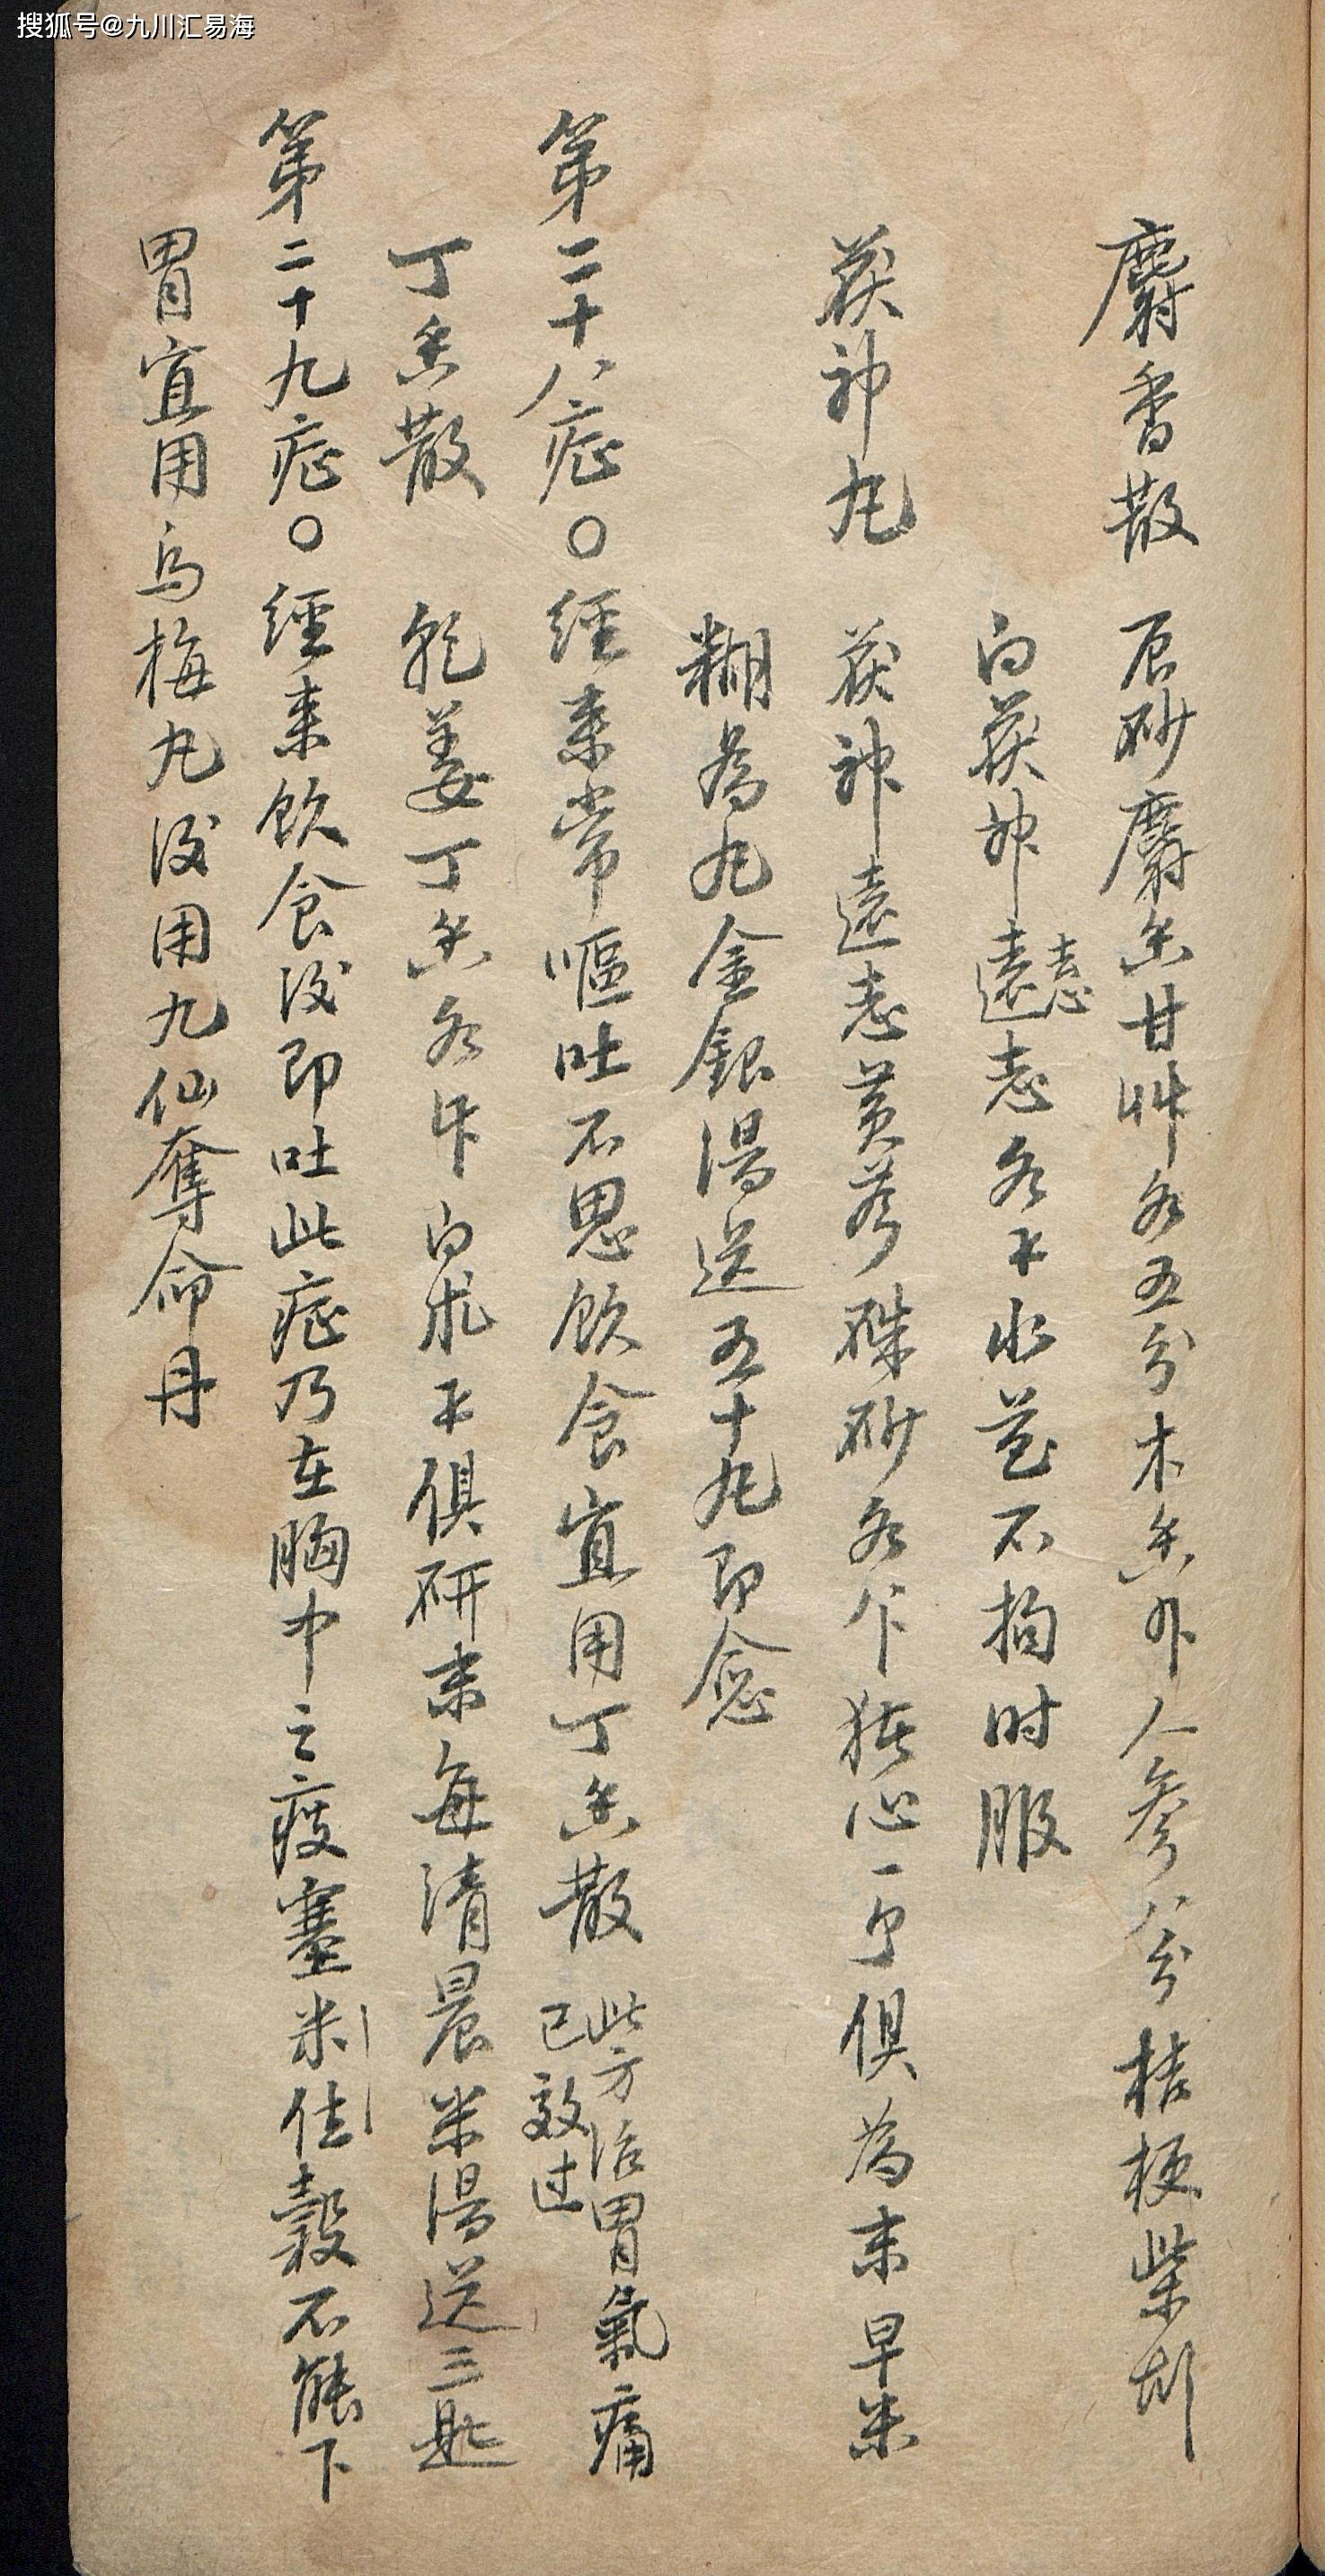 搜狐号@九川汇易海
麝香散 辰砂麝香甘艸各五分木香外人參八分桔梗柴胡
白茯神遠志各水煎不拘时服
志
茯神丸 茯神遠志黄芩硃砂各猪心一个俱為末早米
糊為丸金銀湯送五十丸即愈
第二十八症○經来常嘔吐不思飲食宜用丁香散
此方治胃氣痛
已效过
丁香散 乾姜丁香各白朮俱研末每清晨米湯送三匙
第二十九症○經来飲食後即吐此症乃在胸中之痰塞米住穀不能下
胃宜用乌梅丸後用九仙奪命丹